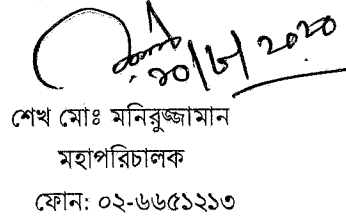 ২০/৮/২০২০
শেখ মোঃ মনিরুজ্জামান
মহাপরিচালক
ফোন: ০২-৬৬৫১২১৩